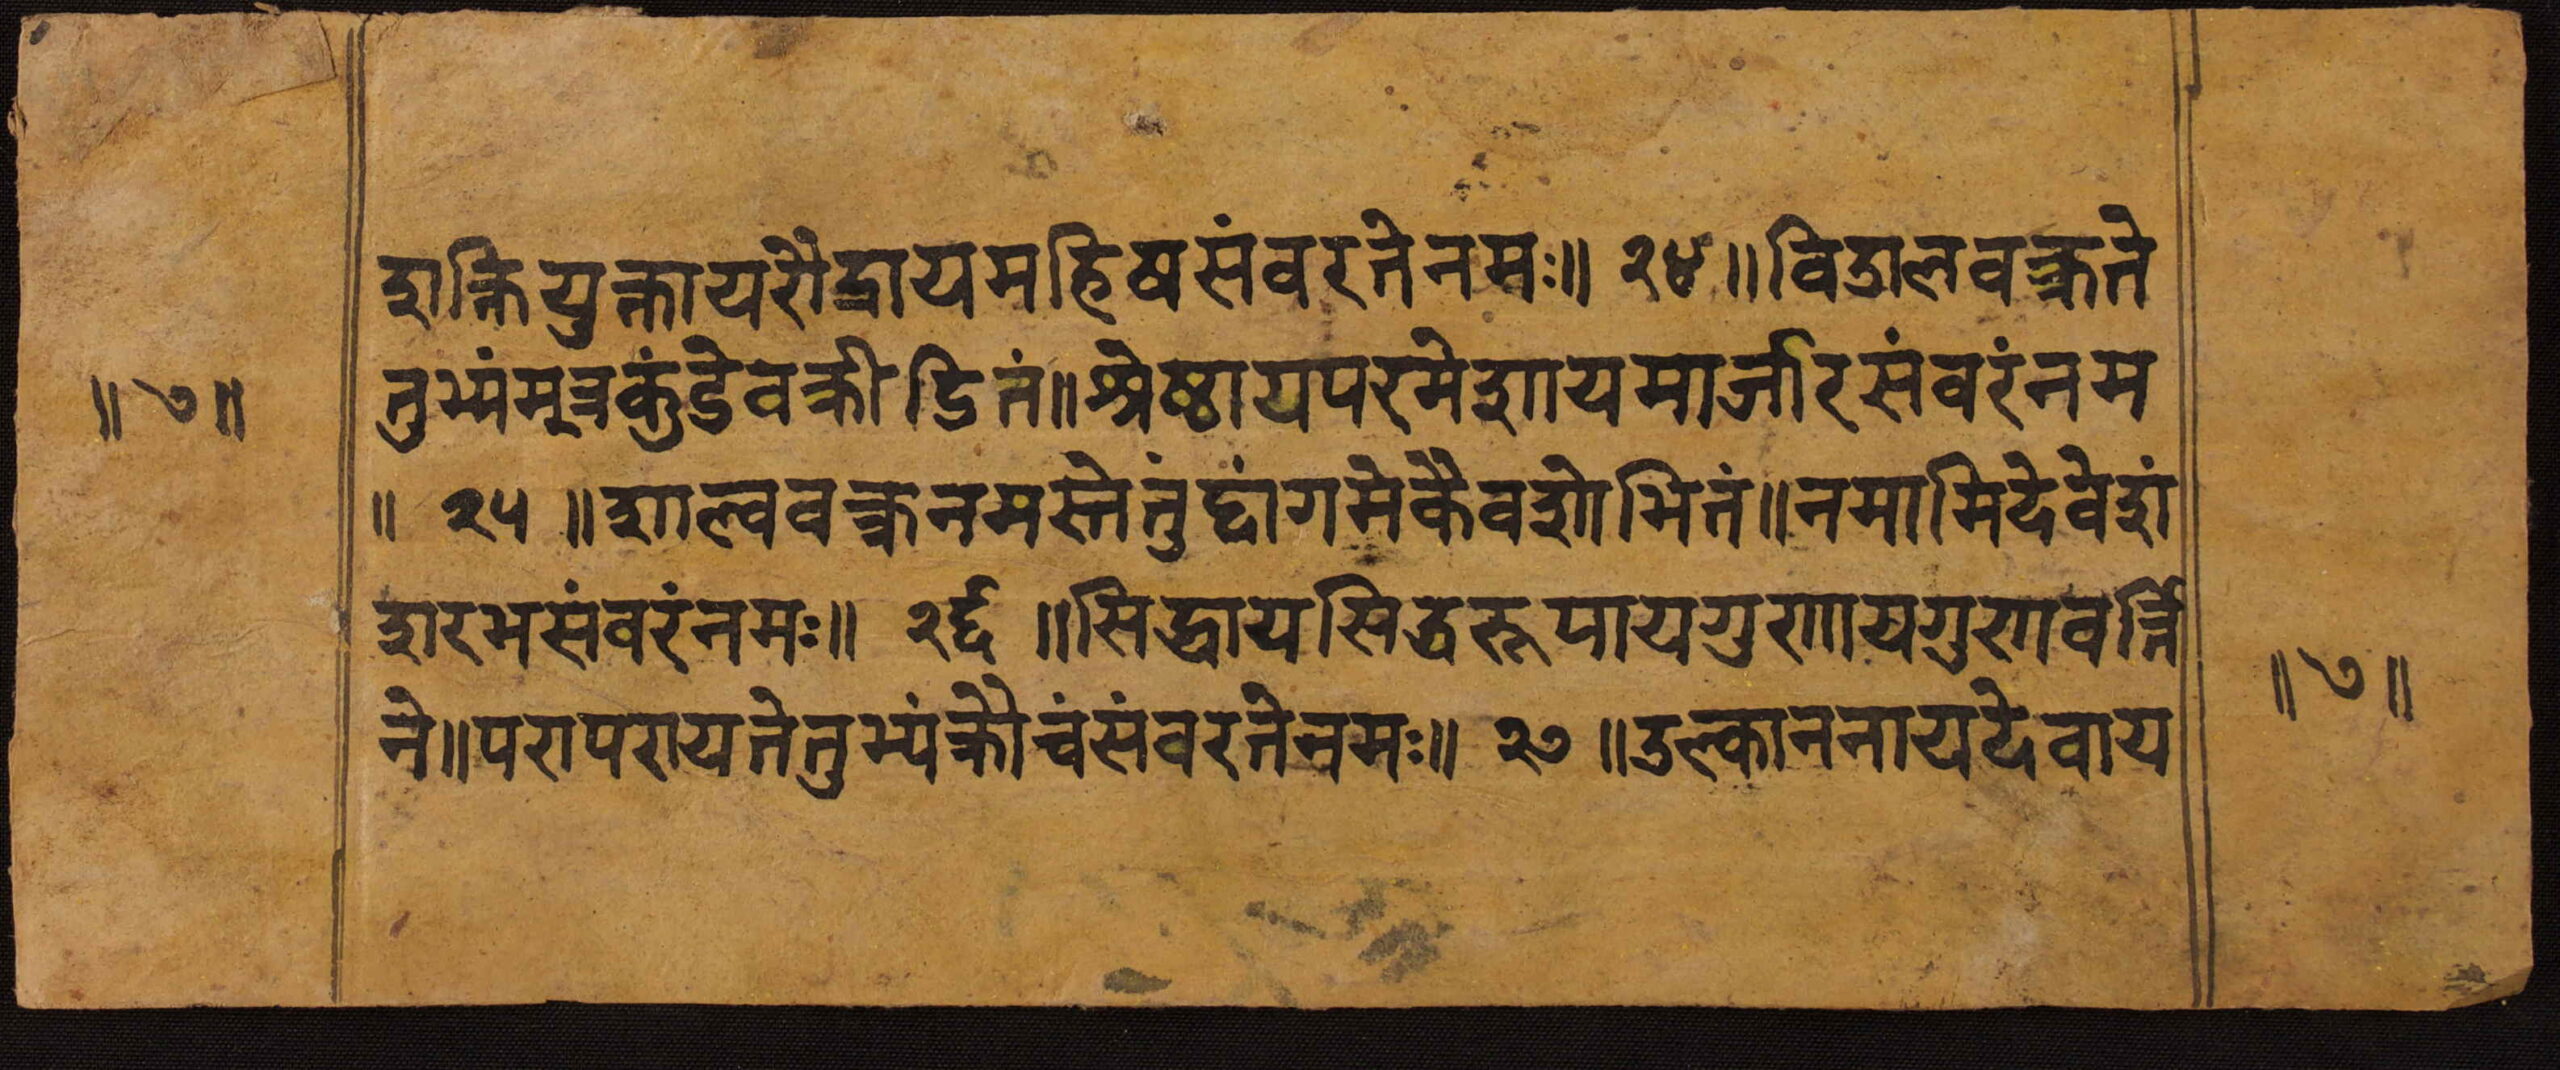 शक्तियुक्तायरौद्रायमहिषसंवरतेनमः॥ २४ ॥विडालवक्त्रते
॥ ७ ॥
तुभ्यंमूत्रकुंडेवक्रीडितं॥श्रेष्ठायपरमेशायमार्जारसंवरंनम
॥ २५ ॥शाल्ववक्त्रनमस्तेतुंद्वांगमेकैवशोभितं॥नमामिदेवेशं
शरभसंवरंनमः॥ २६ ॥सिद्धायसिद्धरूपायगुणायगुणवर्त्ति
॥ ७ ॥
ने॥परापरायतेतुभ्यंक्रौचंसंवरतेनमः॥ २७ ॥उल्काननायदेवाय